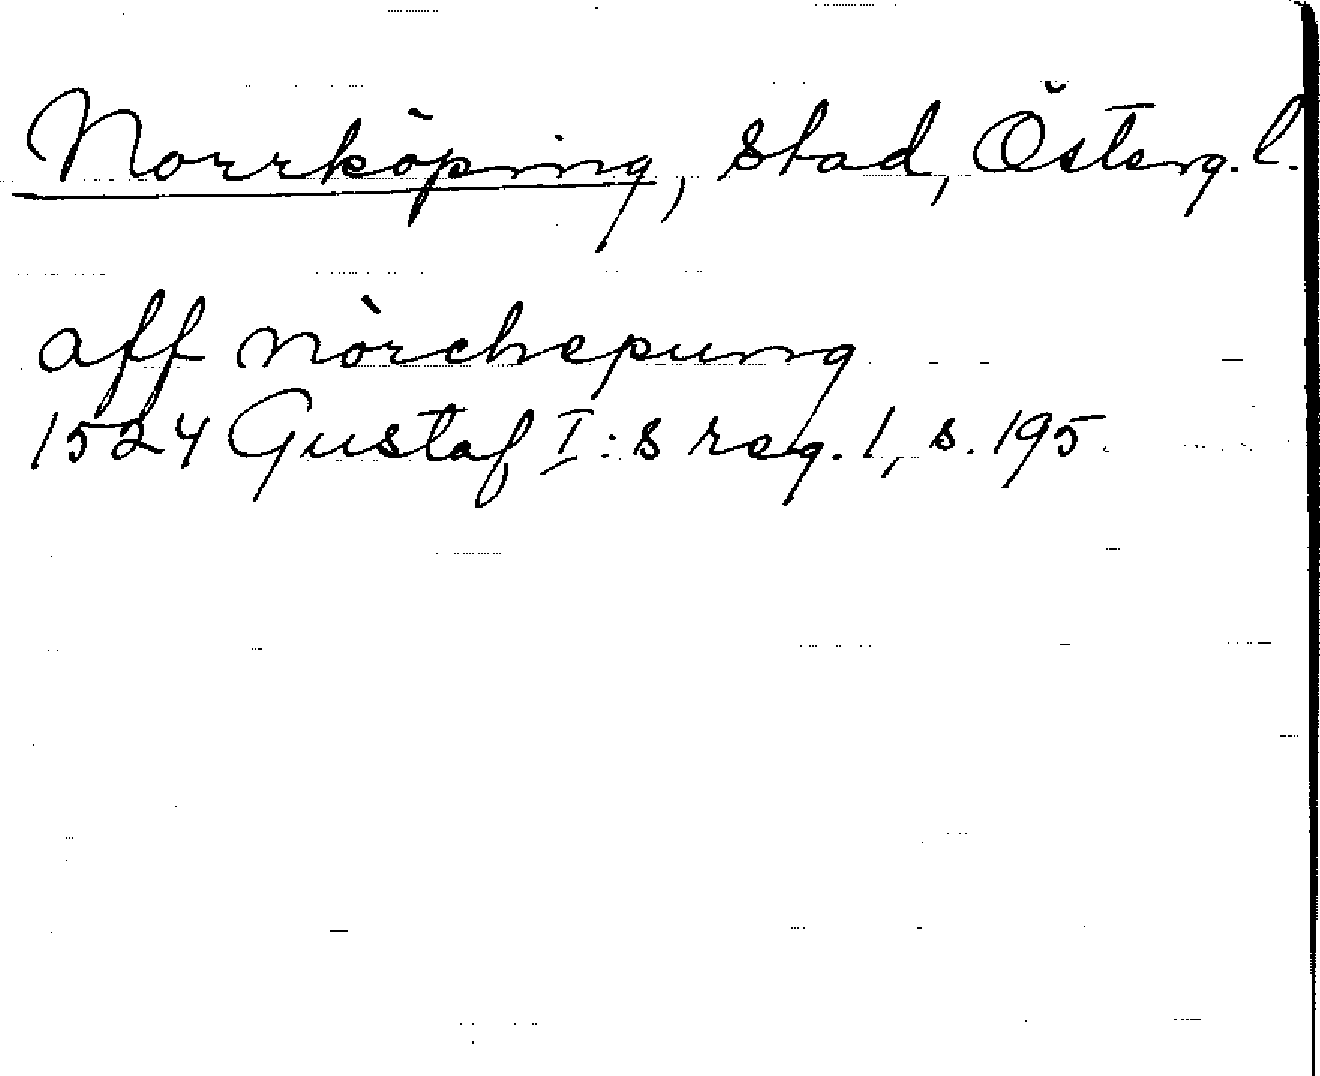 Norrköping, Stad, Österg. l.
aff nörchepung
1524 Gustaf I:s reg. 1, s. 195